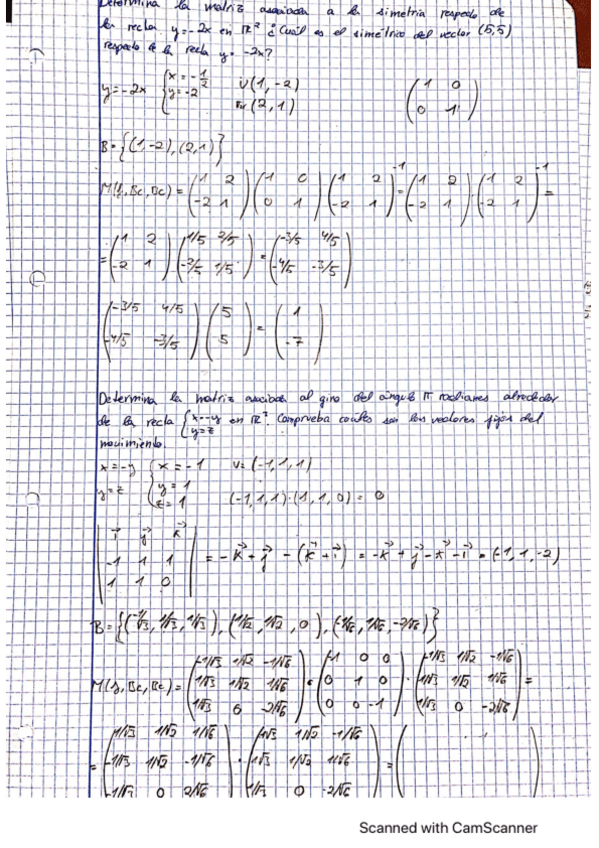 Determina la matriz asociada a la simetría respecto de
la recta y=-2x en R² ¿Cuál es el simétrico del vector (5,5)
respecto de la recta y=-2x?
y=-2x { x=-1/2 y=-2 v(1,-2) (2,1) (1 0 / 0 1)
B={(1,-2),(2,1)}
M(f,Bc,Bc) = (1 2 / -2 1) (1 0 / 0 1) (1 2 / -2 1)^-1 = (1 2 / -2 1) · (1 2 / -2 1)^-1 =
= (1 2 / -2 1) (1/5 2/5 / -2/5 1/5) = (-3/5 4/5 / -4/5 -3/5)
(-3/5 4/5 / -4/5 -3/5) (5 / 5) = (1 / -7)
Determina la matriz asociada al giro del ángulo π radianes alrededor
de la recta { x=-y y=z en R³. Comprueba cuales son los vectores fijos del
movimiento.
x=-y y=z { x=-1 y=1 z=1 v=(-1,1,1)
(-1,1,1)·(1,1,0)=0
| i j k / -1 1 1 / 1 1 0 | = -k+j-(k+i) = -k+j-k-i = (-1,1,-2)
B={(-1/√3, 1/√3, 1/√3), (1/√2, 1/√2, 0), (-1/√6, 1/√6, -2/√6)}
M(f,Bc,Bc) = (-1/√3 1/√2 -1/√6 / 1/√3 1/√2 1/√6 / 1/√3 0 -2/√6) · (-1 0 0 / 0 1 0 / 0 0 -1) · (-1/√3 1/√2 -1/√6 / 1/√3 1/√2 1/√6 / 1/√3 0 -2/√6) =
= (1/√3 1/√2 1/√6 / -1/√3 1/√2 -1/√6 / -1/√3 0 2/√6) · (1/√3 1/√2 -1/√6 / 1/√3 1/√2 1/√6 / 1/√3 0 -2/√6) = (
Scanned with CamScanner